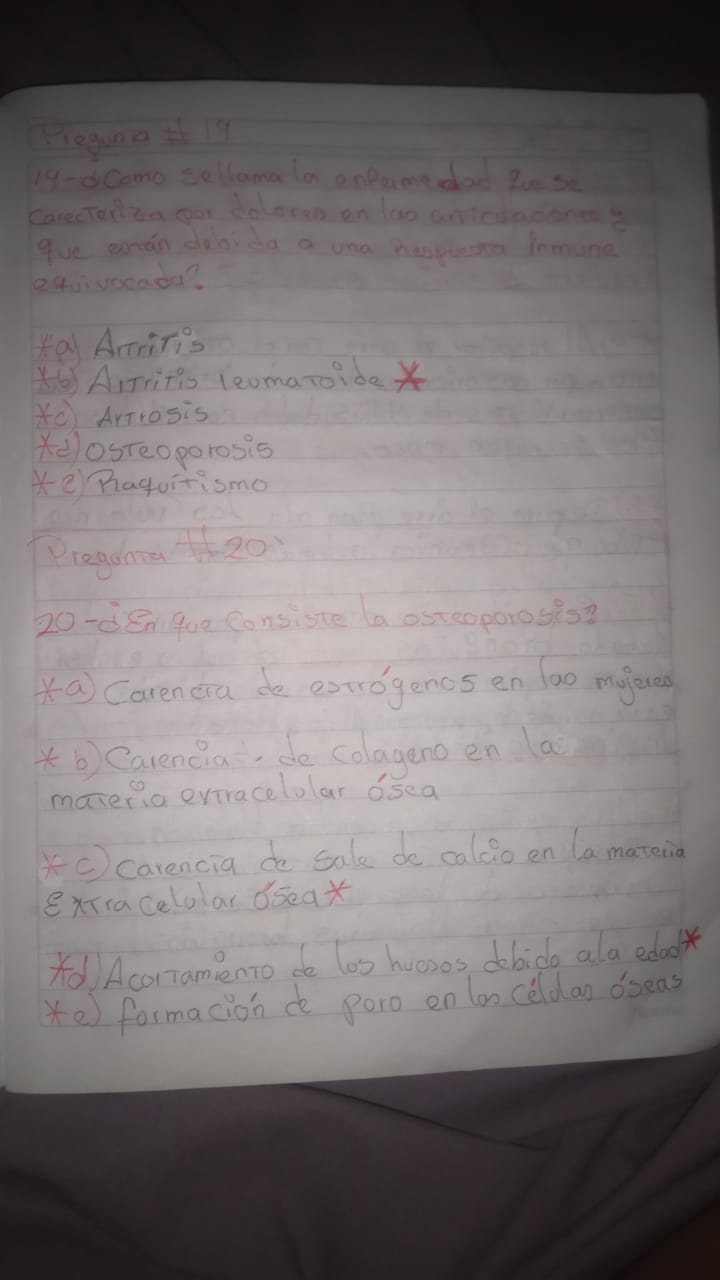 Pregunta # 19
19-¿Como sellama la enfermedad que se
carecteriza por dolores en las articulaciones y
que están debida a una Respuesta inmune
equivocada?
*a) Artritis
*b) Artritis reumatoide *
*c) Artrosis
*d) Osteoporosis
*e) Raquitismo
Pregunta #20
20-¿En que consiste la osteoporosis?
*a) Carencia de estrógenos en las mujeres
*b) Carencia de colageno en la
materia extracelular ósea
*c) carencia de sale de calcio en la materia
Extracelular ósea *
*d) Acortamiento de los huesos debido ala edad *
*e) formación de poro en las células óseas